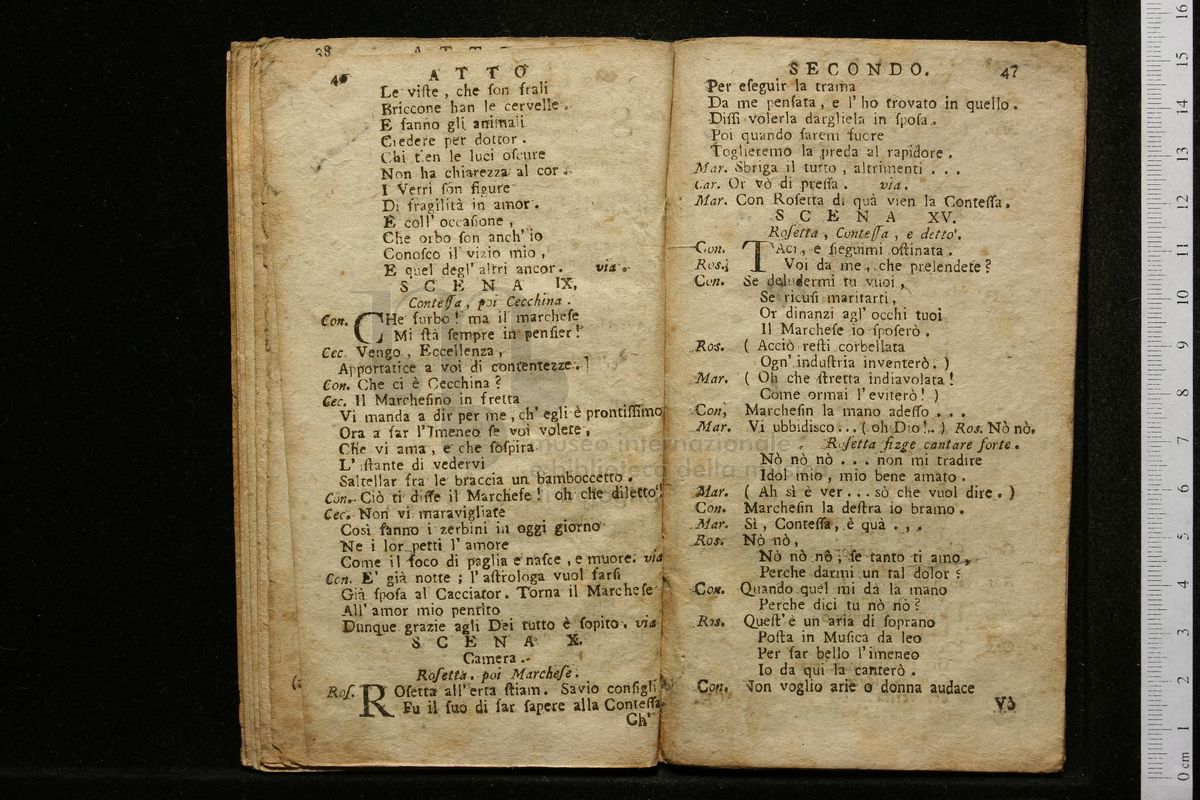 38 ATTO
40 ATTO
Le viſte, che ſon frali
Briccone han le cervelle.
E fanno gli animali
Ciedere per dottor.
Chi tien le luci oſcure
Non ha chiarezza al cor.
I Vetri ſon figure
Di fragilità in amor.
E coll' occaſione,
Che orbo ſon anch' io
Conoſco il vizio mio,
E quel degl' altri ancor. via.
SCENA IX,
Conteſſa, poi Cecchina.
Con. CHe furbo! ma il marcheſe
Mi ſtà ſempre in penſier!
Cec. Vengo, Eccellenza,
Apportatice a voi di contentezze.]
Con. Che ci è Cecchina?
Cec. Il Marcheſino in fretta
Vi manda a dir per me, ch' egli è prontiſſimo
Ora a far l'Imeneo ſe voi volete,
Che vi ama, e che ſoſpira
L' iſtante di vedervi
Saltellar fra le braccia un bamboccetto.
Con. Ciò ti diſſe il Marcheſe! oh che diletto!
Cec. Non vi maravigliate
Così fanno i zerbini in oggi giorno
Ne i lor petti l' amore
Come il foco di paglia e naſce, e muore. via
Con. E' già notte; l' aſtrologa vuol farſi
Già ſpoſa al Cacciator. Torna il Marcheſe
All' amor mio pentito
Dunque grazie agli Dei tutto è ſopito. via
SCENA X.
Camera.
Roſetta. poi Marcheſe.
Roſ. ROſetta all' erta ſtiam. Savio conſigli
Fu il ſuo di far ſapere alla Conteſſa
Ch'
SECONDO. 47
Per eſeguir la trama
Da me penſata, e l' ho trovato in quello.
Diſſi volerla dargliela in ſpoſa.
Poi quando ſarem fuore
Toglieremo la preda al rapidore.
Mar. Sbriga il tutto, altrimenti . . .
Car. Or vò di preſſa. via.
Mar. Con Roſetta di quà vien la Conteſſa.
SCENA XV.
Roſetta, Conteſſa, e detto.
Con. TAci, e ſieguimi oſtinata.
Ros. Voi da me, che prelendete?
Con. Se deludermi tu vuoi,
Se ricuſi maritarti,
Or dinanzi agl' occhi tuoi
Il Marcheſe io ſpoſerò.
Ros. ( Acciò reſti corbellata
Ogn' induſtria inventerò. )
Mar. ( Oh che ſtretta indiavolata!
Come ormai l'eviterò! )
Con, Marcheſin la mano adeſſo . . .
Mar. Vi ubbidisco... ( oh Dio!.. ) Ros. Nò nò.
Roſetta fizge cantare forte.
Nò nò nò . . . non mi tradire
Idol mio, mio bene amato.
Mar. ( Ah sì è ver . . . sò che vuol dire. )
Con. Marcheſin la deſtra io bramo.
Mar. Sì, Conteſſa, è quà . , .
Ros. Nò nò,
Nò nò nò; ſe tanto ti amo,
Perche darmi un tal dolor?
Con. Quando quel mi dà la mano
Perche dici tu nò nò?
Ros. Queſt' è un aria di ſoprano
Poſta in Muſica da leo
Per far bello l'imeneo
Io da qui la canterò.
Con. Non voglio arie o donna audace
Và
museo internazionale
e biblioteca della musica